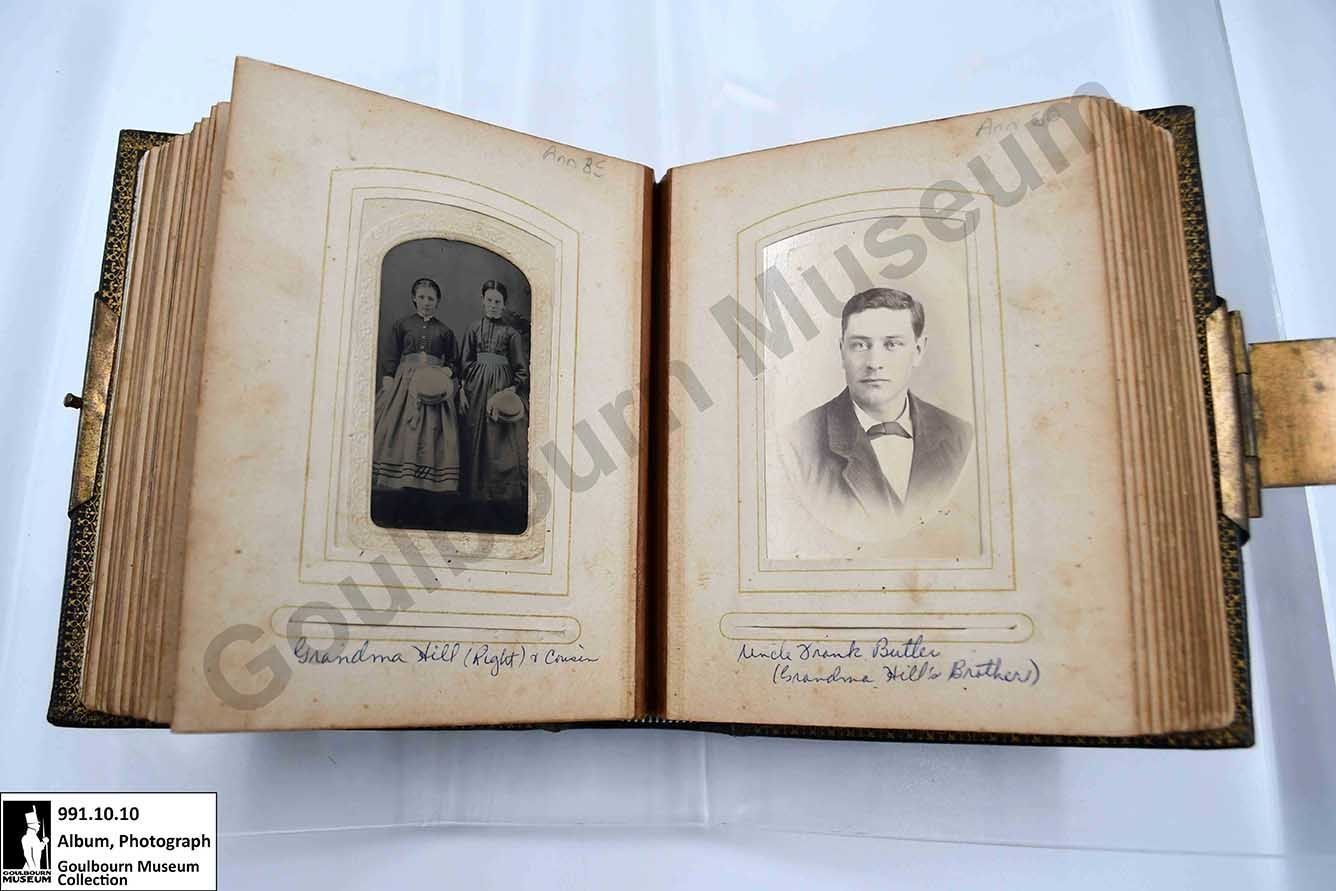 Ann 85
Ann
Grandma Hill (Right) & Cousin
Uncle Frank Butler
(Grandma Hill's Brother)
Goulbourn Museum
991.10.10
Album, Photograph
Goulbourn Museum
Collection
GOULBOURN
MUSEUM